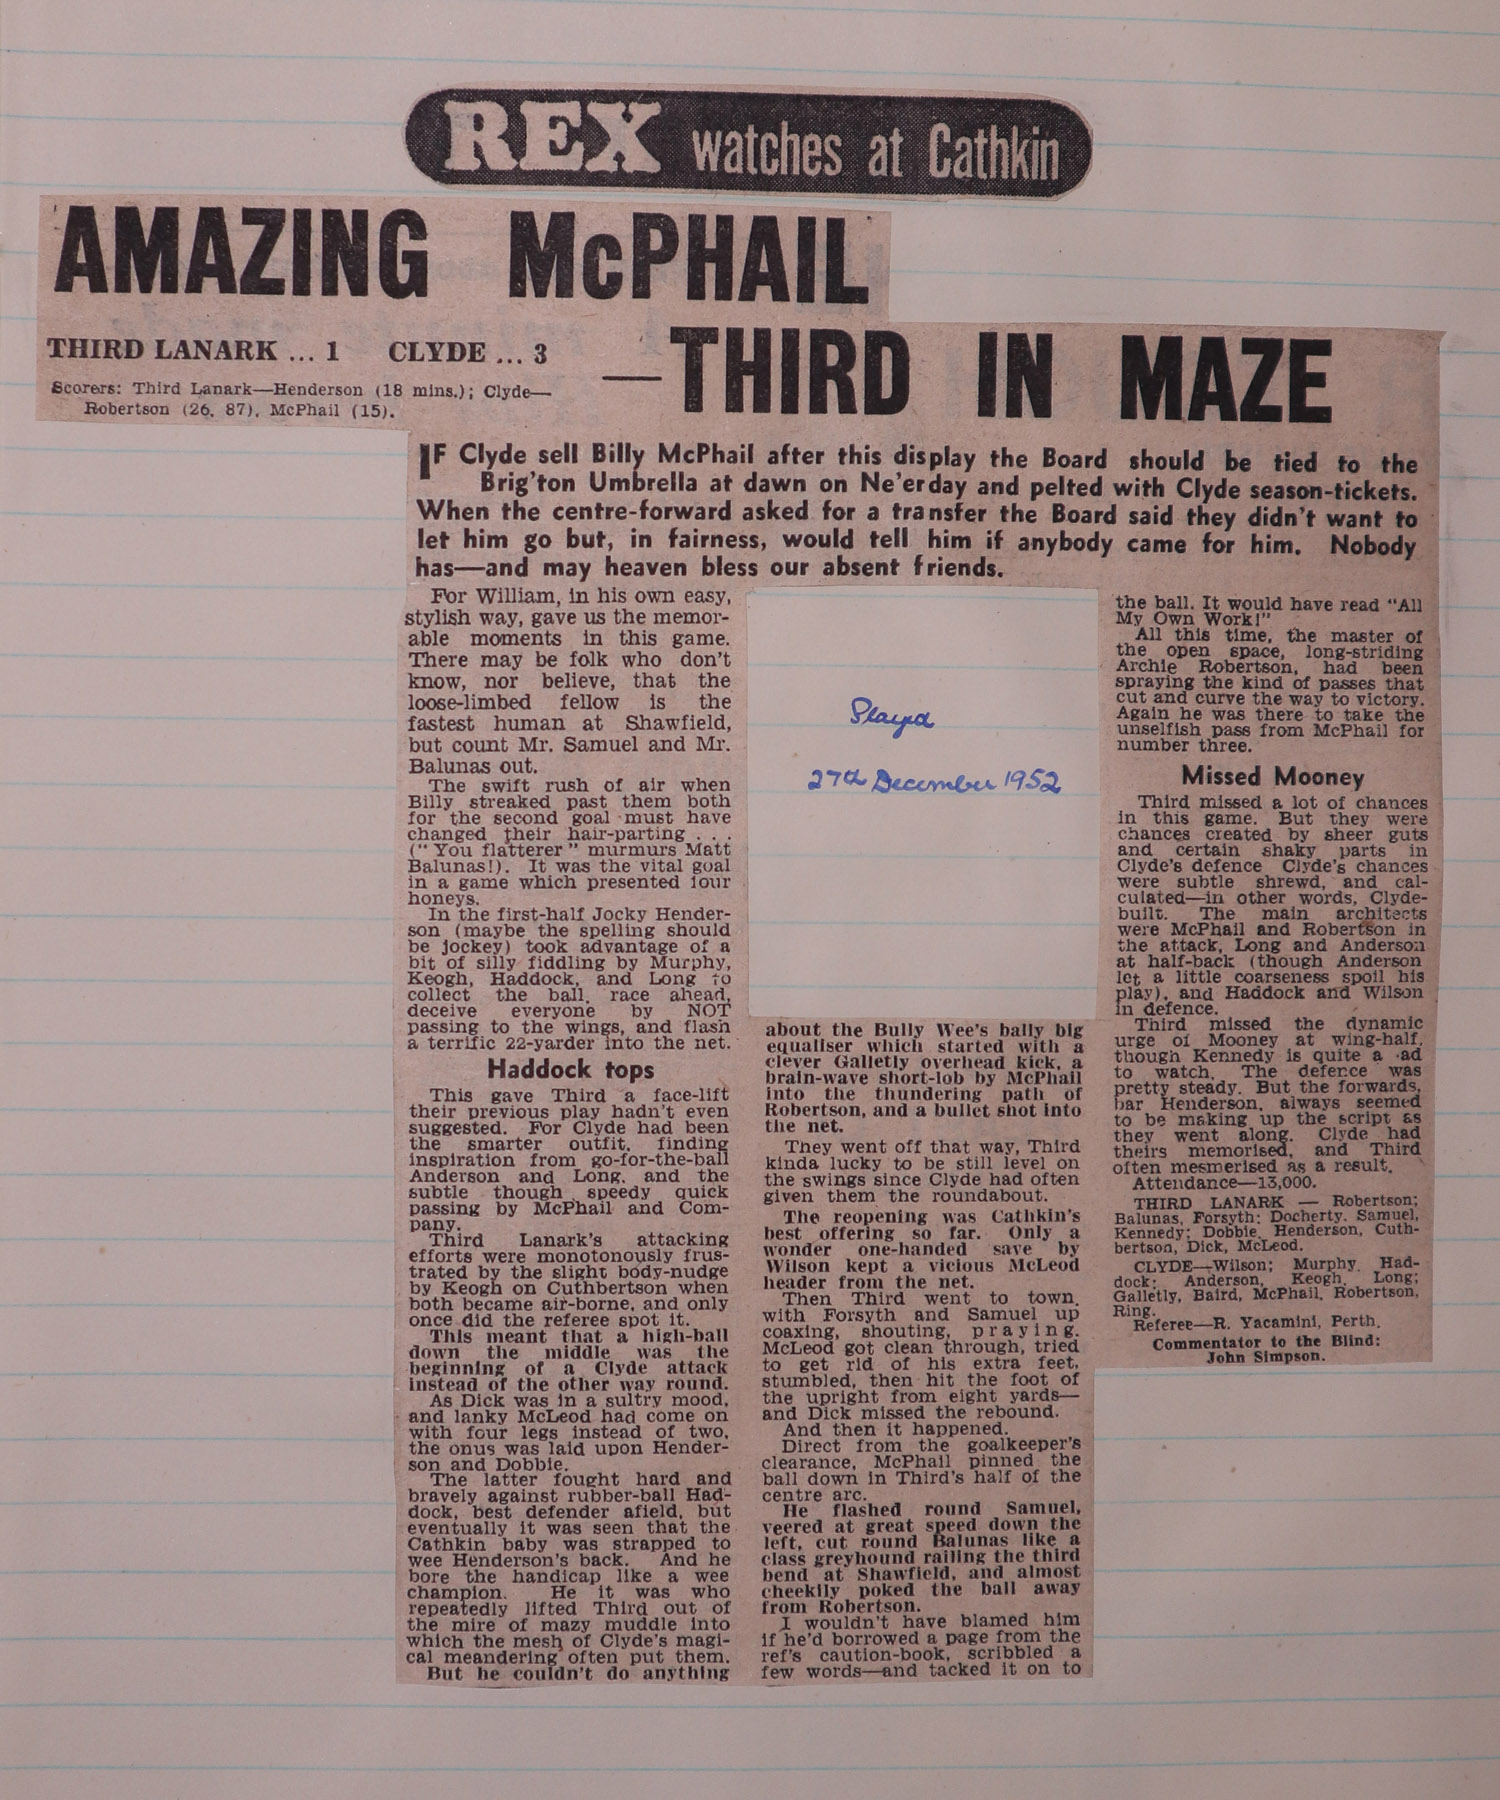 REX watches at Cathkin
AMAZING McPHAIL
—THIRD IN MAZE
THIRD LANARK ... 1 CLYDE ... 3
Scorers: Third Lanark—Henderson (18 mins.); Clyde—
Robertson (26, 87), McPhail (15).
IF Clyde sell Billy McPhail after this display the Board should be tied to the
Brig'ton Umbrella at dawn on Ne'erday and pelted with Clyde season-tickets.
When the centre-forward asked for a transfer the Board said they didn't want to
let him go but, in fairness, would tell him if anybody came for him. Nobody
has—and may heaven bless our absent friends.
For William, in his own easy,
stylish way, gave us the memor-
able moments in this game.
There may be folk who don't
know, nor believe, that the
loose-limbed fellow is the
fastest human at Shawfield,
but count Mr. Samuel and Mr.
Balunas out.
The swift rush of air when
Billy streaked past them both
for the second goal must have
changed their hair-parting . . .
("You flatterer" murmurs Matt
Balunas!). It was the vital goal
in a game which presented four
honeys.
In the first-half Jocky Hender-
son (maybe the spelling should
be jockey) took advantage of a
bit of silly fiddling by Murphy,
Keogh, Haddock, and Long to
collect the ball, race ahead,
deceive everyone by NOT
passing to the wings, and flash
a terrific 22-yarder into the net.
Haddock tops
This gave Third a face-lift
their previous play hadn't even
suggested. For Clyde had been
the smarter outfit, finding
inspiration from go-for-the-ball
Anderson and Long, and the
subtle though speedy quick
passing by McPhail and Com-
pany.
Third Lanark's attacking
efforts were monotonously frus-
trated by the slight body-nudge
by Keogh on Cuthbertson when
both became air-borne, and only
once did the referee spot it.
This meant that a high-ball
down the middle was the
beginning of a Clyde attack
instead of the other way round.
As Dick was in a sultry mood,
and lanky McLeod had come on
with four legs instead of two,
the onus was laid upon Hender-
son and Dobbie.
The latter fought hard and
bravely against rubber-ball Had-
dock, best defender afield, but
eventually it was seen that the
Cathkin baby was strapped to
wee Henderson's back. And he
bore the handicap like a wee
champion. He it was who
repeatedly lifted Third out of
the mire of mazy muddle into
which the mesh of Clyde's magi-
cal meandering often put them.
But he couldn't do anything
Played
27th December 1952
about the Bully Wee's bally big
equaliser which started with a
clever Galletly overhead kick, a
brain-wave short-lob by McPhail
into the thundering path of
Robertson, and a bullet shot into
the net.
They went off that way, Third
kinda lucky to be still level on
the swings since Clyde had often
given them the roundabout.
The reopening was Cathkin's
best offering so far. Only a
wonder one-handed save by
Wilson kept a vicious McLeod
header from the net.
Then Third went to town,
with Forsyth and Samuel up
coaxing, shouting, praying.
McLeod got clean through, tried
to get rid of his extra feet,
stumbled, then hit the foot of
the upright from eight yards—
and Dick missed the rebound.
And then it happened.
Direct from the goalkeeper's
clearance, McPhail pinned the
ball down in Third's half of the
centre arc.
He flashed round Samuel,
veered at great speed down the
left, cut round Balunas like a
class greyhound railing the third
bend at Shawfield, and almost
cheekily poked the ball away
from Robertson.
I wouldn't have blamed him
if he'd borrowed a page from the
ref's caution-book, scribbled a
few words—and tacked it on to
the ball. It would have read "All
My Own Work!"
All this time, the master of
the open space, long-striding
Archie Robertson, had been
spraying the kind of passes that
cut and curve the way to victory.
Again he was there to take the
unselfish pass from McPhail for
number three.
Missed Mooney
Third missed a lot of chances
in this game. But they were
chances created by sheer guts
and certain shaky parts in
Clyde's defence Clyde's chances
were subtle shrewd, and cal-
culated—in other words, Clyde-
built. The main architects
were McPhail and Robertson in
the attack, Long and Anderson
at half-back (though Anderson
let a little coarseness spoil his
play), and Haddock and Wilson
in defence.
Third missed the dynamic
urge of Mooney at wing-half,
though Kennedy is quite a ad
to watch. The defence was
pretty steady. But the forwards,
bar Henderson, always seemed
to be making up the script as
they went along. Clyde had
theirs memorised, and Third
often mesmerised as a result.
Attendance—13,000.
THIRD LANARK — Robertson;
Balunas, Forsyth; Docherty, Samuel,
Kennedy; Dobbie, Henderson, Cuth-
bertson, Dick, McLeod.
CLYDE—Wilson; Murphy, Had-
dock; Anderson, Keogh, Long;
Galletly, Baird, McPhail, Robertson,
Ring.
Referee—R. Yacamini, Perth.
Commentator to the Blind:
John Simpson.